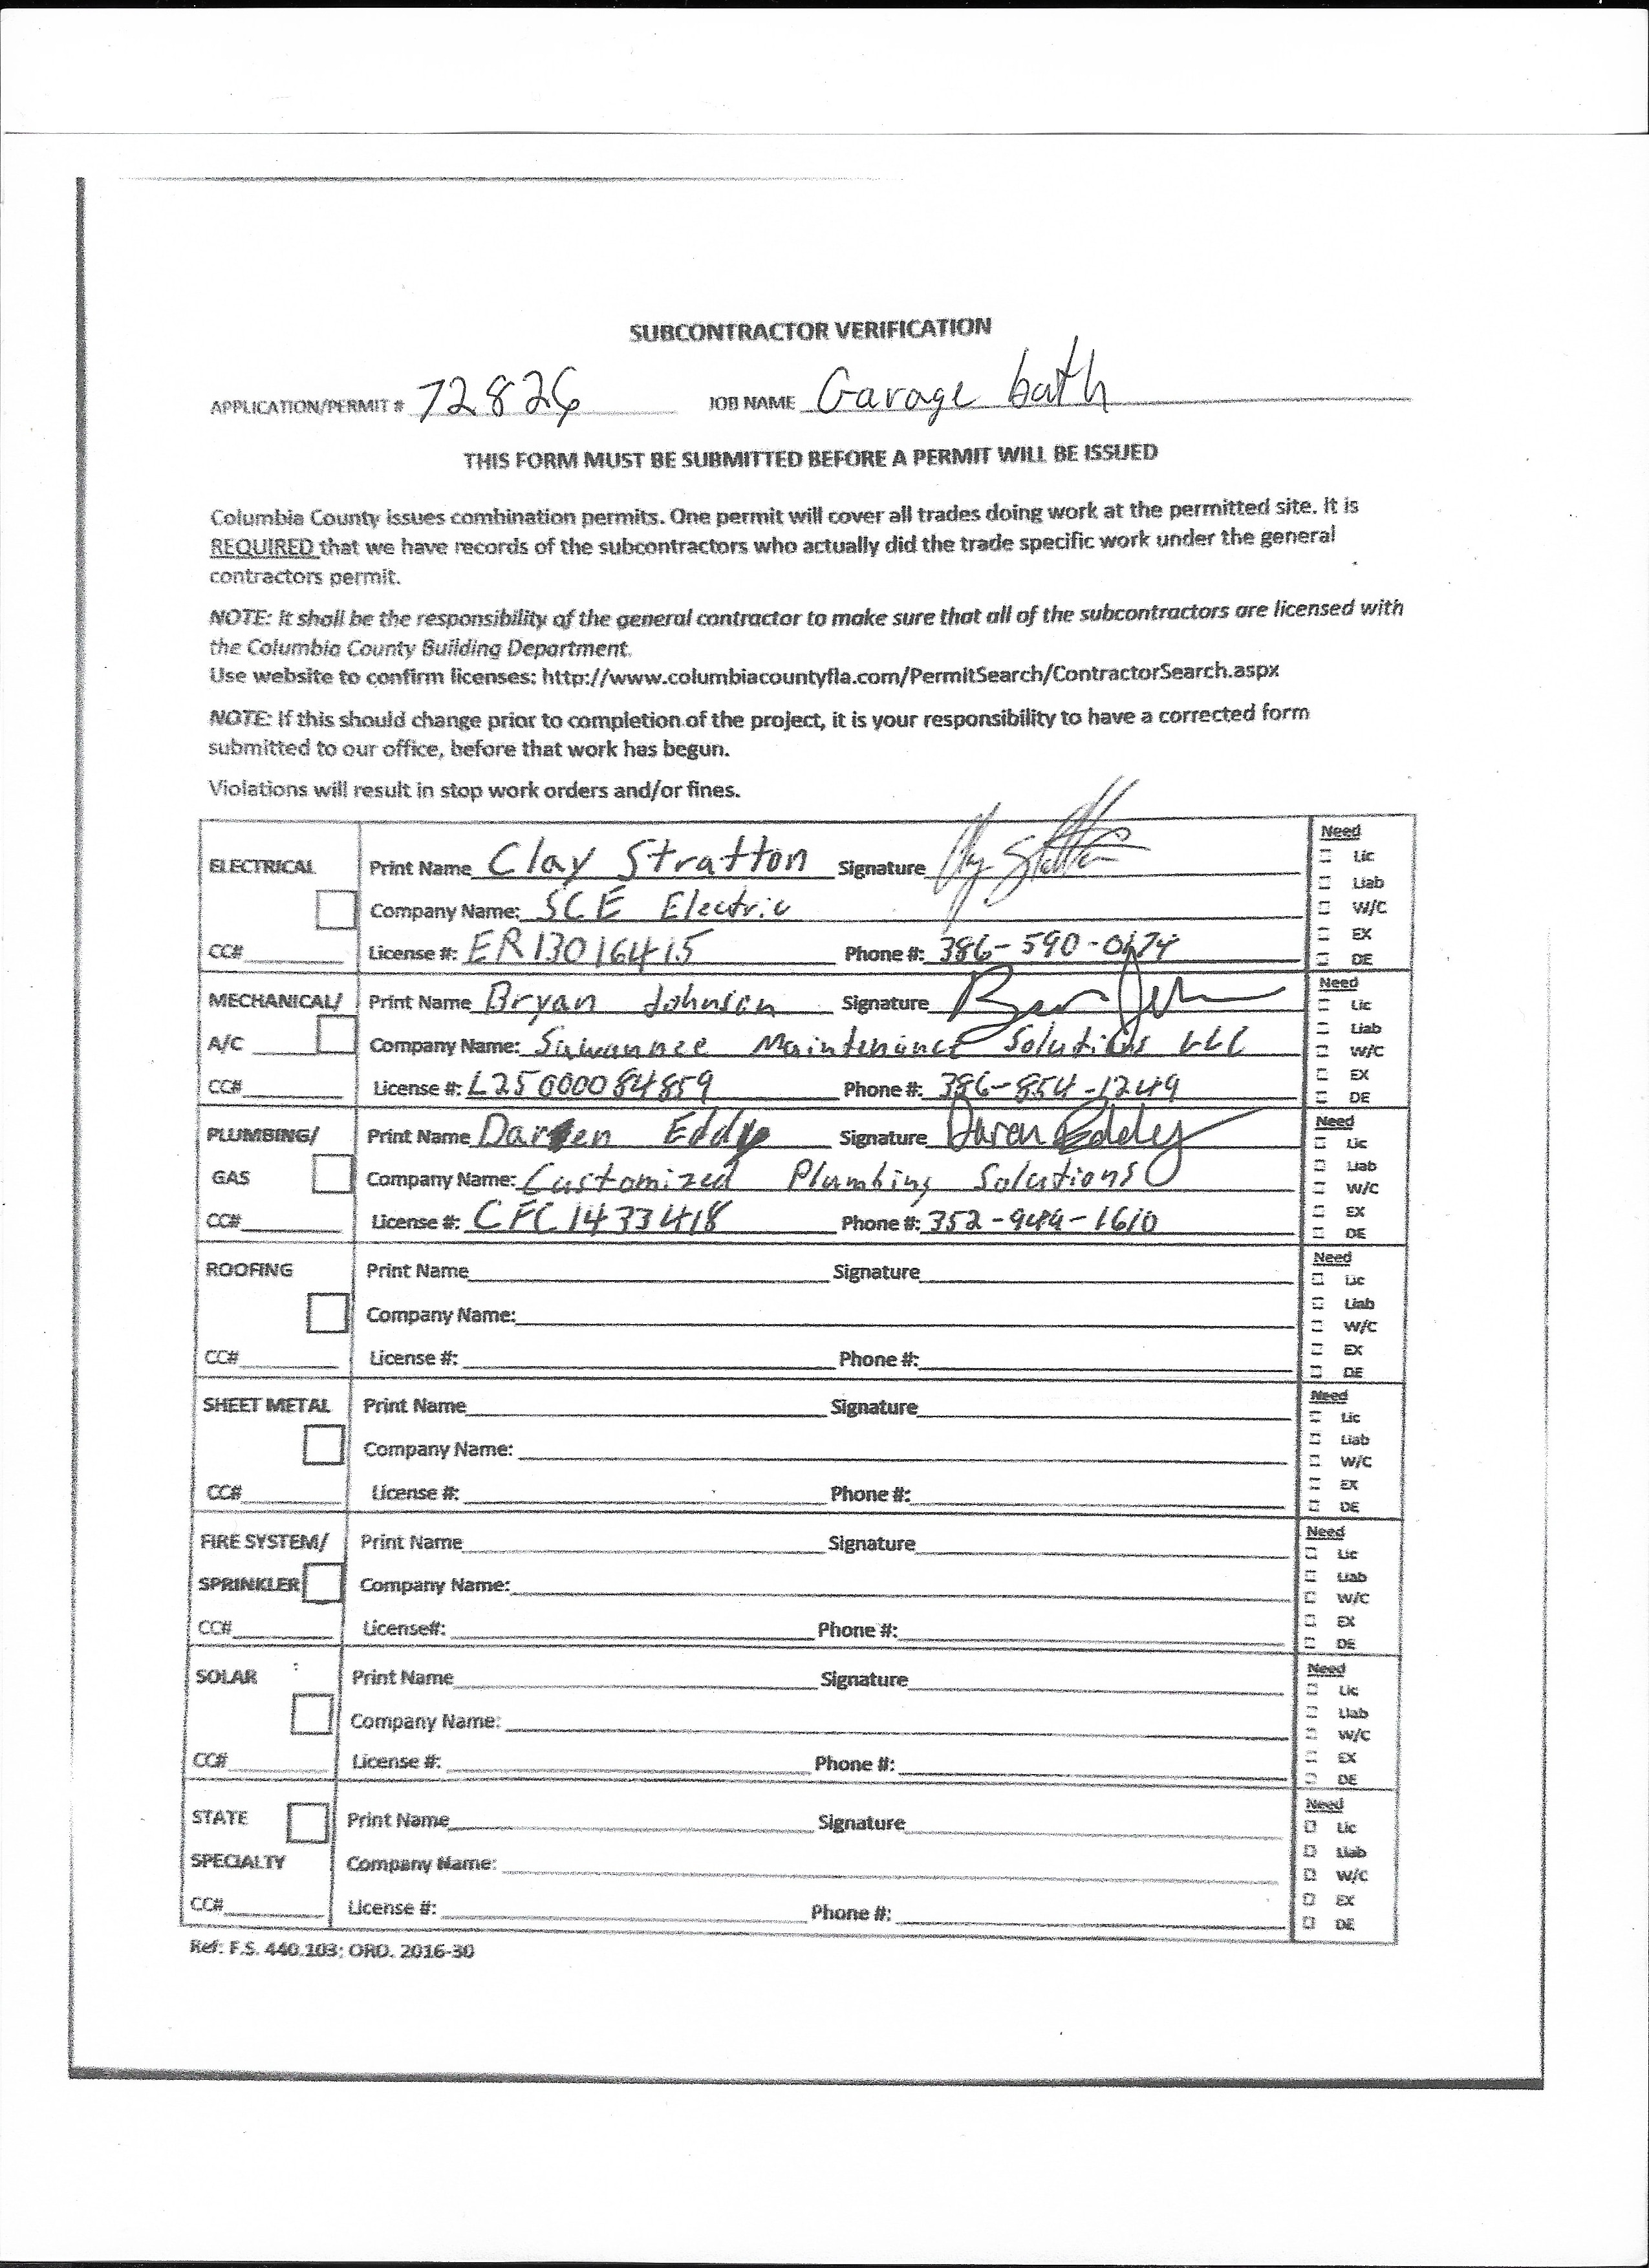 SUBCONTRACTOR VERIFICATION
APPLICATION/PERMIT # 72826 JOB NAME Garage bath
THIS FORM MUST BE SUBMITTED BEFORE A PERMIT WILL BE ISSUED
Columbia County issues combination permits. One permit will cover all trades doing work at the permitted site. It is
REQUIRED that we have records of the subcontractors who actually did the trade specific work under the general
contractors permit.
NOTE: It shall be the responsibility of the general contractor to make sure that all of the subcontractors are licensed with
the Columbia County Building Department.
Use website to confirm licenses: http://www.columbiacountyfla.com/PermitSearch/ContractorSearch.aspx
NOTE: If this should change prior to completion of the project, it is your responsibility to have a corrected form
submitted to our office, before that work has begun.
Violations will result in stop work orders and/or fines.
ELECTRICAL Print Name Clay Stratton Signature Need
Lic
Liab
Company Name: SCE Electric W/C
EX
CC# License #: ER13016415 Phone #: 386-590- DE
MECHANICAL/ Print Name Bryan Johnson Signature Need
Lic
Liab
A/C Company Name: Suwannee Maintenance Solutions LLC W/C
EX
CC# License #: L25000084859 Phone #: 386-854-1249 DE
PLUMBING/ Print Name Darren Eddy Signature Daren Eddey Need
Lic
Liab
GAS Company Name: Customized Plumbing Solutions W/C
EX
CC# License #: CFC1433418 Phone #: 352-949-1610 DE
ROOFING Print Name Signature Need
Lic
Liab
Company Name: W/C
EX
CC# License #: Phone #: DE
SHEET METAL Print Name Signature Need
Lic
Liab
Company Name: W/C
EX
CC# License #: Phone #: DE
FIRE SYSTEM/ Print Name Signature Need
Lic
Liab
SPRINKLER Company Name: W/C
EX
CC# License#: Phone #: DE
SOLAR Print Name Signature Need
Lic
Liab
Company Name: W/C
EX
CC# License #: Phone #: DE
STATE Print Name Signature Need
Lic
Liab
SPECIALTY Company Name: W/C
EX
CC# License #: Phone #: DE
Ref: F.S. 440.103; ORD. 2016-30